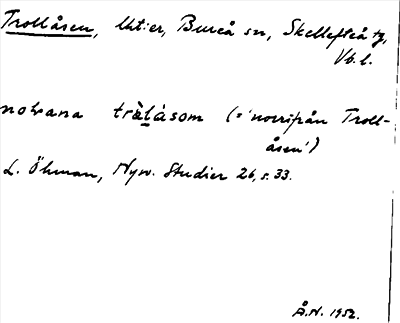 Trollåsen, Utier, Bureå sn, Skellefteå tg,
Vb. l.
nowana tràlåsom (= 'norrifrån Troll-
åsen')
L. Öhman, Nysv. Studier 26, s. 33.
Å.N. 1952.